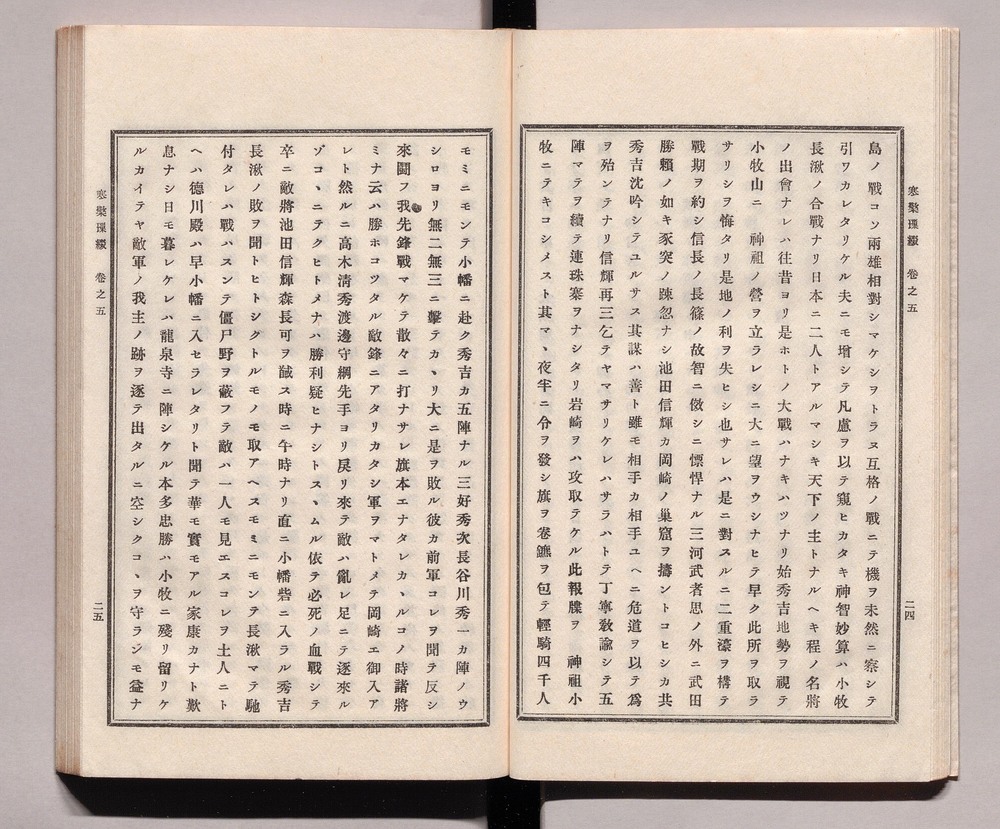 島ノ戰コソ兩雄相對シマケシヲトラヌ互格ノ戰ニテ機ヲ未然ニ察シテ
引ワカレタリケル夫ニモ增シテ凡慮ヲ以テ窺ヒカタキ神智妙算ハ小牧
長湫ノ合戰ナリ日本ニ二人トアルマシキ天下ノ主トナルヘキ程ノ名將
ノ出會ナレハ往昔ヨリ是ホトノ大戰ハナキハツナリ始秀吉地勢ヲ視テ
小牧山ニ 神祖ノ營ヲ立ラレシニ大ニ望ヲウシナヒテ早ク此所ヲ取ラ
サリシヲ悔タリ是地ノ利ヲ失ヒシ也サレハ是ニ對スルニ二重濠ヲ構テ
戰期ヲ約シ信長ノ長篠ノ故智ニ倣シニ慓悍ナル三河武者思ノ外ニ武田
勝賴ノ如キ豕突ノ踈忽ナシ池田信輝カ岡崎ノ巢窟ヲ擣ントコヒシカ共
秀吉沈吟シテユルサス其謀ハ善ト雖モ相手カ相手ユヘニ危道ヲ以テ爲
ヲ殆ンテナリ信輝再三乞テヤマサリケレハサラハトテ丁寧敎諭シテ五
陣マテヲ續テ連珠寨ヲナシタリ岩崎ヲハ攻取テケル此報牒ヲ 神祖小
牧ニテキコシメスト其マヽ夜半ニ令ヲ發シ旗ヲ卷鑣ヲ包テ輕騎四千人
寒檠璅綴 卷之五
二四
モミニモンテ小幡ニ赴ク秀吉カ五陣ナル三好秀次長谷川秀一カ陣ノウ
シロヨリ無二無三ニ擊テカヽリ大ニ是ヲ敗ル彼カ前軍コレヲ聞テ反シ
來鬪フ我先鋒戰マケテ散々ニ打ナサレ旗本エナタレカヽルコノ時諸將
ミナ云ハ勝ホコツタル敵鋒ニアタリカタシ軍ヲマトメテ岡崎エ御入ア
レト然ルニ高木淸秀渡邊守綱先手ヨリ戾リ來テ敵ハ亂レ足ニテ逐來ル
ゾコヽニテクヒトメナハ勝利疑ヒナシトスヽムル依テ必死ノ血戰シテ
卒ニ敵將池田信輝森長可ヲ馘ス時ニ午時ナリ直ニ小幡砦ニ入ラル秀吉
長湫ノ敗ヲ聞トヒトシクトルモノモ取アヘスモミニモンテ長湫マテ馳
付タレハ戰ハスンテ僵尸野ヲ蔽フテ敵ハ一人モ見エスコレヲ土人ニト
ヘハ德川殿ハ早小幡ニ入セラレタリト聞テ華モ實モアル家康カナト歎
息ナシ日モ暮レケレハ龍泉寺ニ陣シケル本多忠勝ハ小牧ニ殘リ留リケ
ルカイテヤ敵軍ノ我主ノ跡ヲ逐テ出タルニ空シクコヽヲ守ラジモ益ナ
寒檠璅綴 卷之五
二五